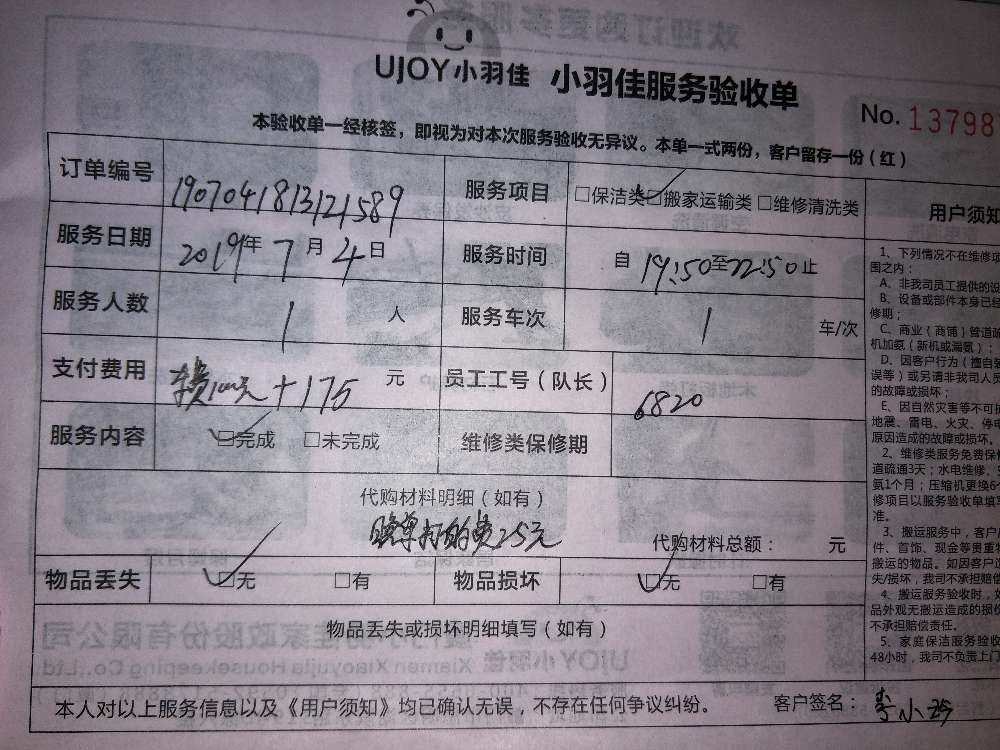 UJOY小羽佳 小羽佳服务验收单
No. 13798
本验收单一经核签，即视为对本次服务验收无异议。本单一式两份，客户留存一份（红）
订单编号 190704181312589 服务项目 □保洁类 ☑搬家运输类 □维修清洗类
服务日期 2019年7月4日 服务时间 自19:50至22:50止
服务人数 1 人 服务车次 1 车/次
支付费用 +175 元 员工工号（队长） 6820
服务内容 ☑完成 □未完成 维修类保修期
代购材料明细（如有）
费25元
代购材料总额： 元
物品丢失 ☑无 □有 物品损坏 ☑无 □有
物品丢失或损坏明细填写（如有）
本人对以上服务信息以及《用户须知》均已确认无误，不存在任何争议纠纷。 客户签名：李小
用户须知
1、下列情况不在维修
围之内：
A、非我司员工提供的设
B、设备或部件本身已
修期；
C、商业（商铺）管道疏
机加氨（新机或漏氨）；
D、因客户行为（擅自
误等）或另请非我司人员
的故障或损坏；
E、因自然灾害等不可
地震、雷电、火灾、停电
原因造成的故障或损坏。
2、维修类服务免费保
道疏通3天；水电维修、
氨1个月；压缩机更换6
修项目以服务验收单填写
准。
3、搬运服务中，客户
件、首饰、现金等贵重
搬运的物品。如因客户
失/损坏，我司不承担赔偿
4、搬运服务验收时，如
品外观无搬运造成的损
不承担赔偿责任。
5、家庭保洁服务验收
48小时，我司不负责上门